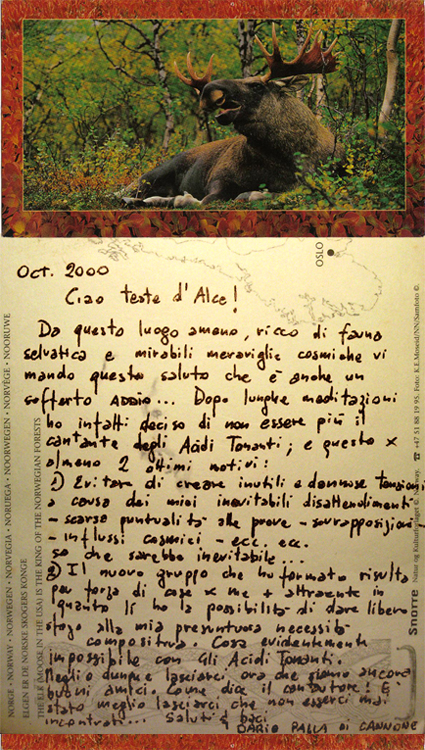 Oct. 2000
Ciao teste d'Alce!
Da questo luogo ameno, ricco di fauna
selvatica e mirabili meraviglie cosmiche vi
mando questo saluto che è anche un
sofferto ADDIO... Dopo lunghe meditazioni
ho infatti deciso di non essere più il
cantante degli Acidi Tonanti; e questo x
almeno 2 ottimi motivi:
1) Evitare di creare inutili e dannose tensioni
a causa dei miei inevitabili disattendimenti
- scarsa puntualità alle prove - sovrapposizioni -
- influssi cosmici - ecc. ecc.
so che sarebbe inevitabile...
2) Il nuovo gruppo che ho formato risulta
per forza di cose x me + attraente in
quanto lì ho la possibilità di dare libero
sfogo alla mia presuntuosa necessità
compositiva. Cosa evidentemente
impossibile con Gli Acidi Tonanti.
Meglio dunque lasciarci ora che siamo ancora
buoni amici. Come dice il cantautore: È
stato meglio lasciarci che non esserci mai
incontrati... Saluti & baci
DARIO PALLA DI CANNONE
OSLO
NORGE • NORWAY • NORWEGEN • NORVEGIA • NORUEGA • NOORWEGEN • NORVÈGE • NOORUWE
ELGEN ER DE NORSKE SKOGERS KONGE
THE ELK (MOOSE IN THE USA) IS THE KING OF THE NORWEGIAN FORESTS
Snorre
☎ +47 51 88 19 95. Foto: K.E.Moseid/NN/Samfoto ©.